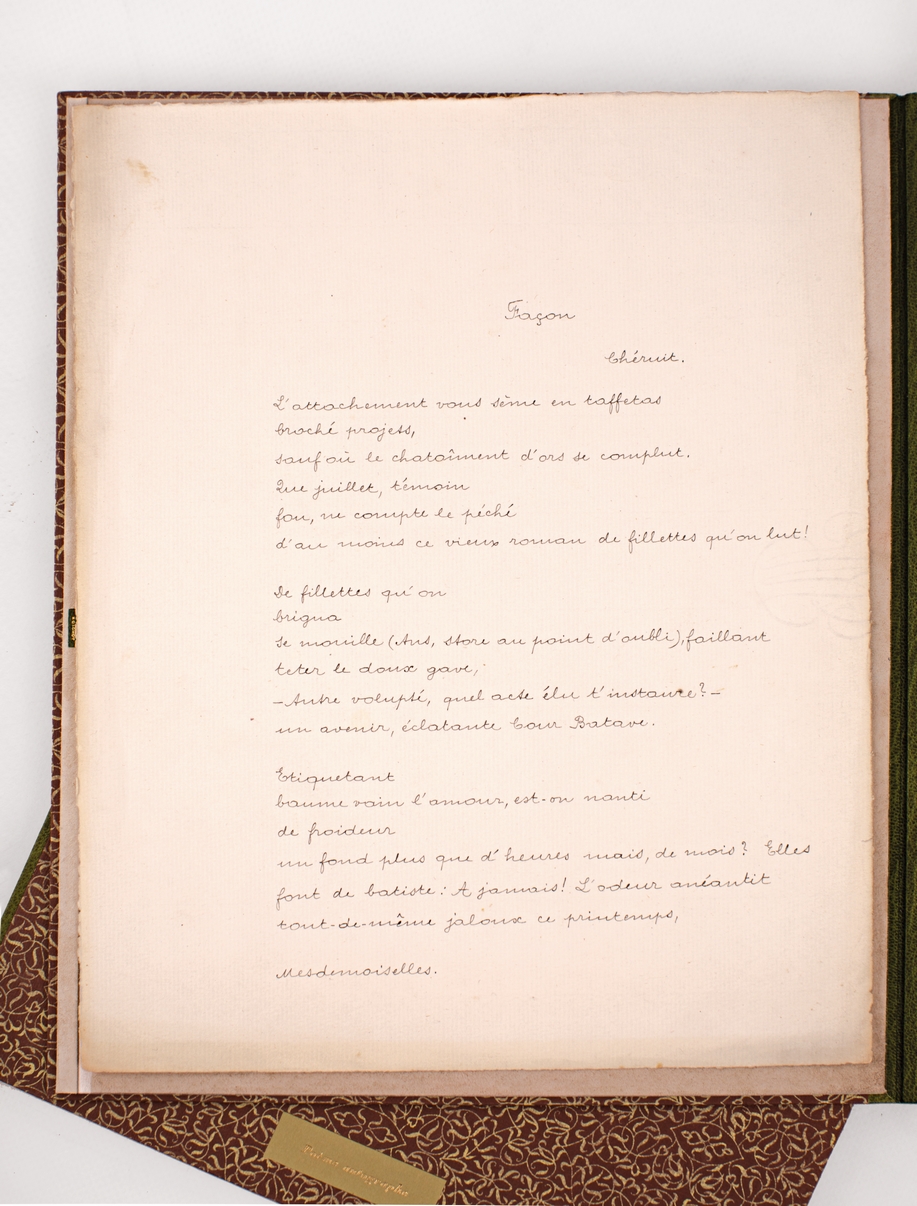 Façon
Chéruit.
L'attachement vous sème en taffetas
broché projets,
sauf où le chatoîment d'ors se complut.
Que juillet, témoin
fou, ne compte le péché
d'au moins ce vieux roman de fillettes qu'on lut!
De fillettes qu'on
brigua
se mouille (Ans, store au point d'oubli), faillant
teter le doux gave,
—Autre volupté, quel acte élu t'instaure?—
un avenir, éclatante Cour Batave.
Etiquetant
baume vain l'amour, est-on nanti
de froideur
un fond plus que d'heures mais, de mois? Elles
font de batiste: A jamais! L'odeur anéantit
tout-de-même jaloux ce printemps,
Mesdemoiselles.
Poème autographe